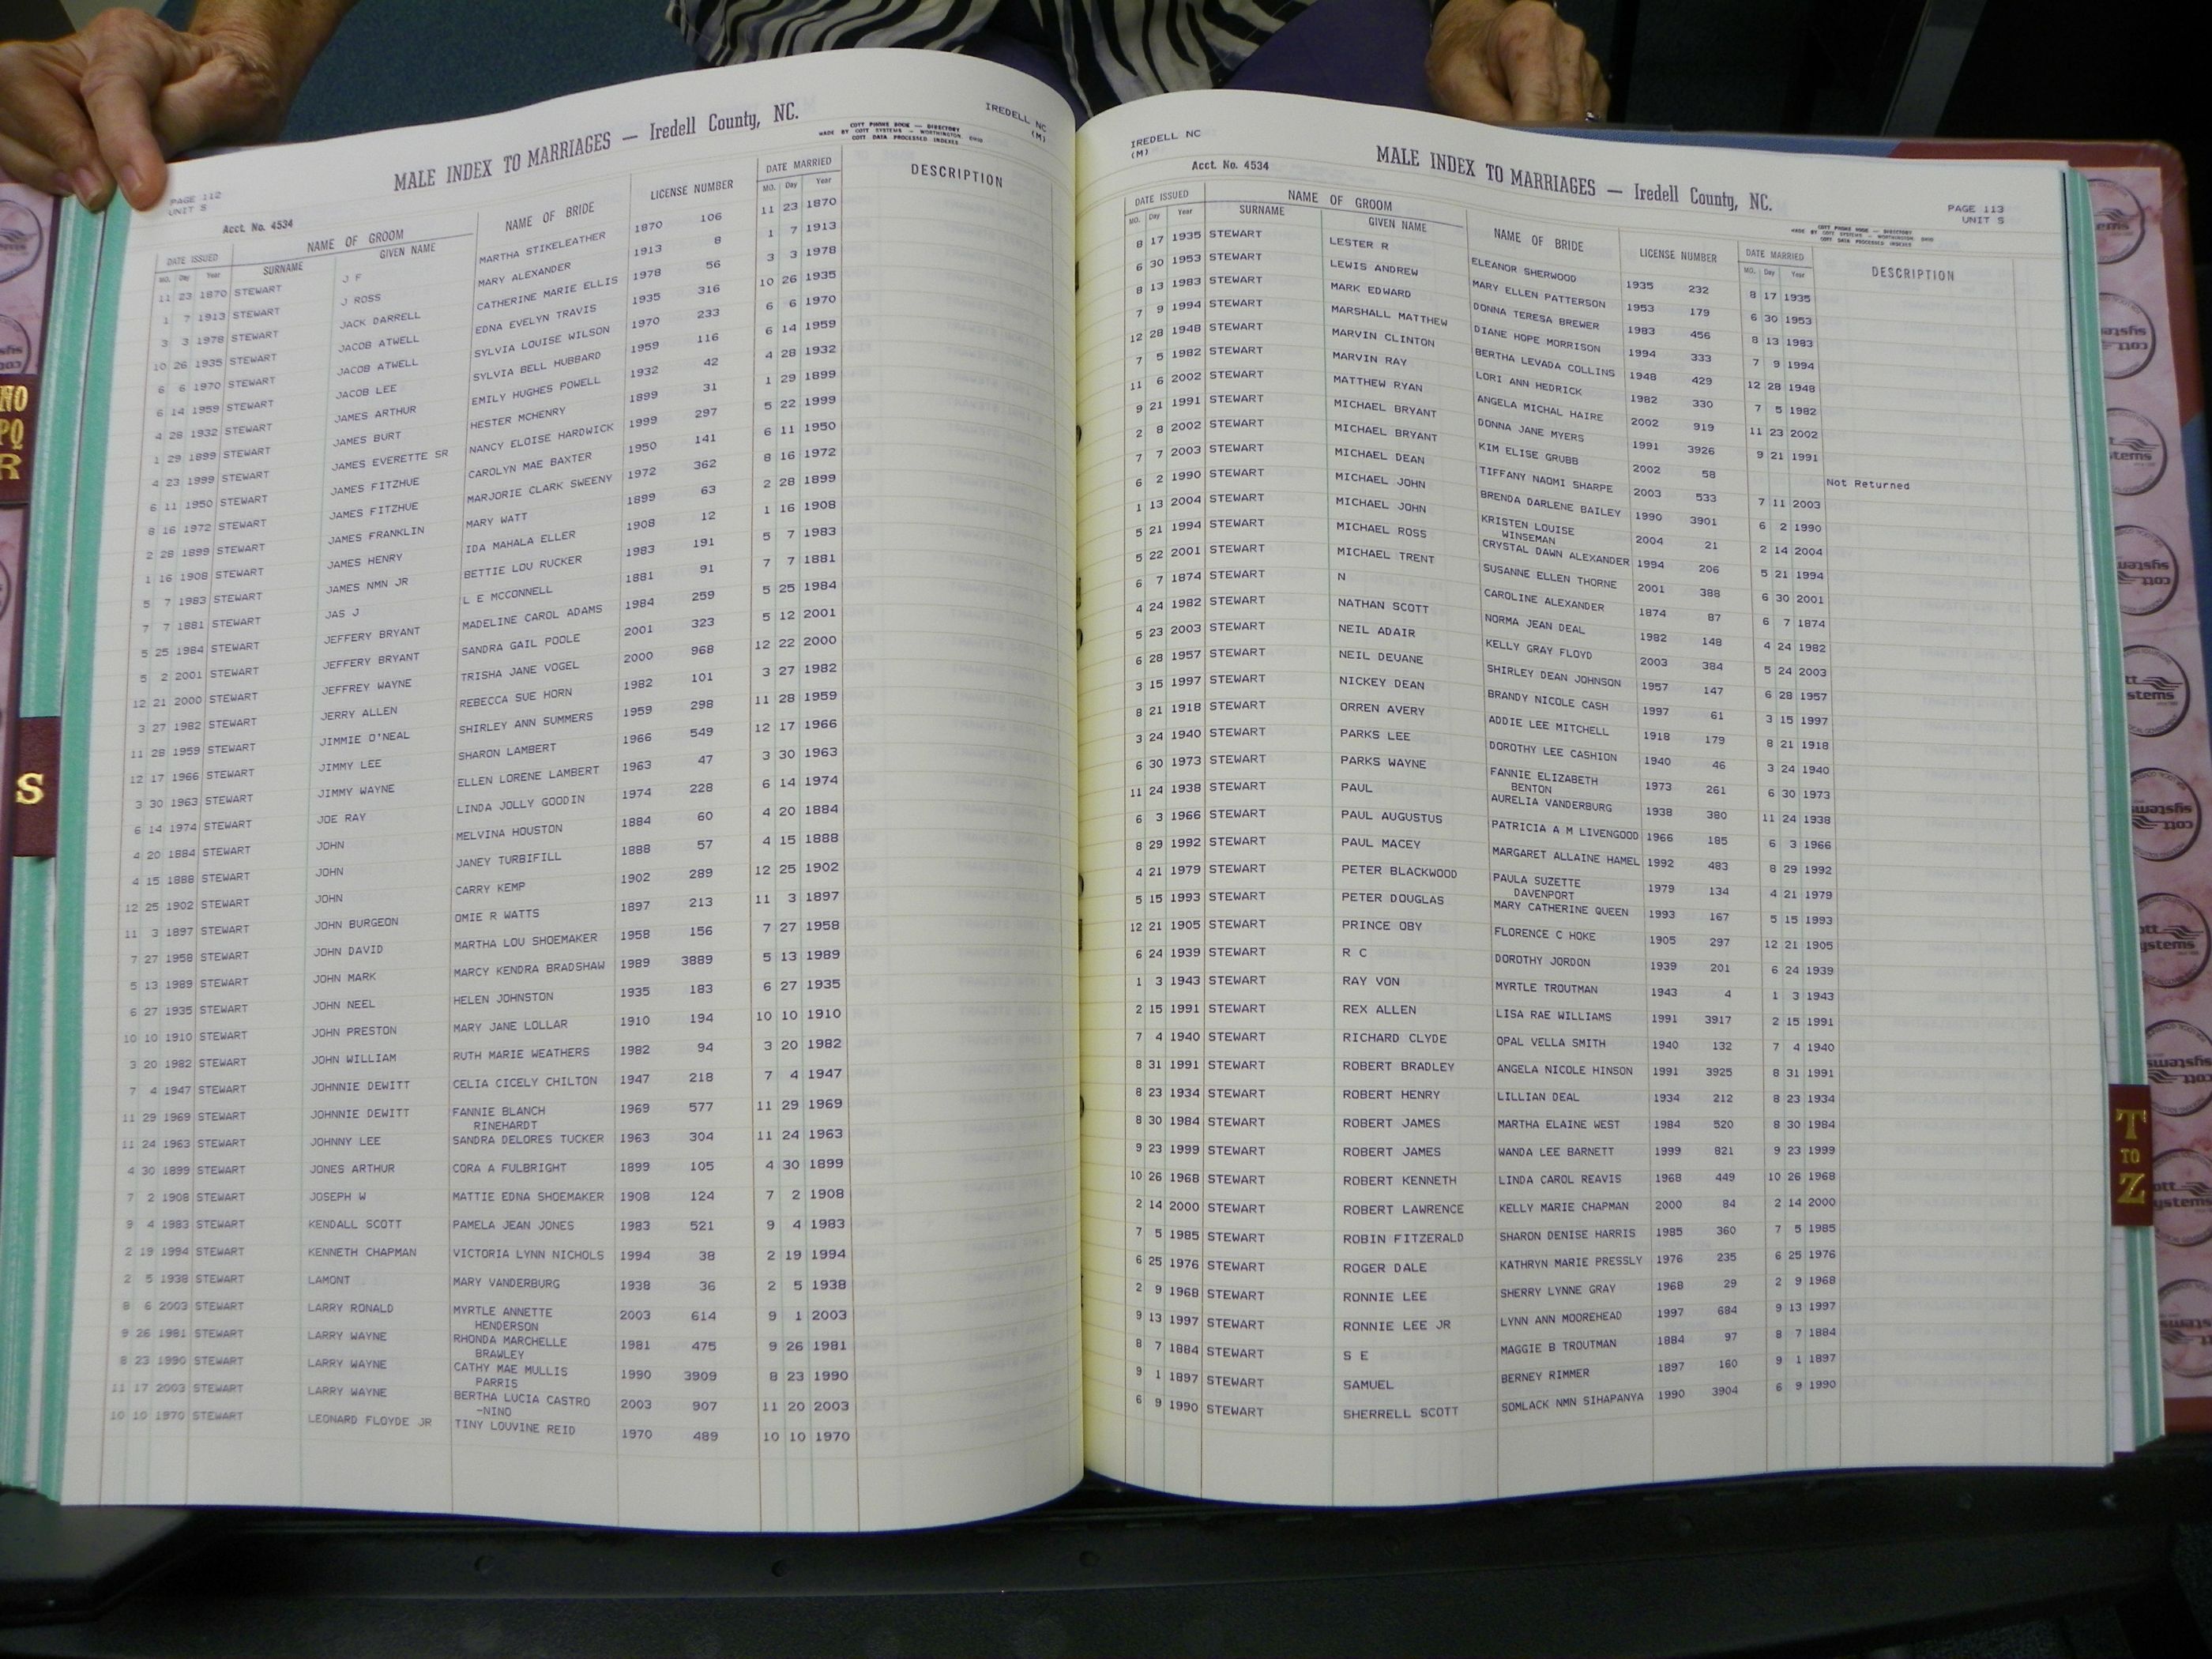 PAGE 112
UNIT S
MALE INDEX TO MARRIAGES — Iredell County, NC.
COTT PHONE BOOK — DIRECTORY
MADE BY COTT SYSTEMS — WORTHINGTON, OHIO
COTT DATA PROCESSED INDEXES
IREDELL NC
(M)
Acct. No. 4534
DATE ISSUED NAME OF GROOM NAME OF BRIDE LICENSE NUMBER DATE MARRIED DESCRIPTION
MO. Day Year SURNAME GIVEN NAME MO. Day Year
11 23 1870 STEWART J F MARTHA STIKELEATHER 1870 106 11 23 1870
1 7 1913 STEWART J ROSS MARY ALEXANDER 1913 8 1 7 1913
3 3 1978 STEWART JACK DARRELL CATHERINE MARIE ELLIS 1978 56 3 3 1978
10 26 1935 STEWART JACOB ATWELL EDNA EVELYN TRAVIS 1935 316 10 26 1935
6 6 1970 STEWART JACOB ATWELL SYLVIA LOUISE WILSON 1970 233 6 6 1970
6 14 1959 STEWART JACOB LEE SYLVIA BELL HUBBARD 1959 116 6 14 1959
4 28 1932 STEWART JAMES ARTHUR EMILY HUGHES POWELL 1932 42 4 28 1932
1 29 1899 STEWART JAMES BURT HESTER MCHENRY 1899 31 1 29 1899
4 23 1999 STEWART JAMES EVERETTE SR NANCY ELOISE HARDWICK 1999 297 5 22 1999
6 11 1950 STEWART JAMES FITZHUE CAROLYN MAE BAXTER 1950 141 6 11 1950
8 16 1972 STEWART JAMES FITZHUE MARJORIE CLARK SWEENY 1972 362 8 16 1972
2 28 1899 STEWART JAMES FRANKLIN MARY WATT 1899 63 2 28 1899
1 16 1908 STEWART JAMES HENRY IDA MAHALA ELLER 1908 12 1 16 1908
5 7 1983 STEWART JAMES NMN JR BETTIE LOU RUCKER 1983 191 5 7 1983
7 7 1881 STEWART JAS J L E MCCONNELL 1881 91 7 7 1881
5 25 1984 STEWART JEFFERY BRYANT MADELINE CAROL ADAMS 1984 259 5 25 1984
5 2 2001 STEWART JEFFERY BRYANT SANDRA GAIL POOLE 2001 323 5 12 2001
12 21 2000 STEWART JEFFREY WAYNE TRISHA JANE VOGEL 2000 968 12 22 2000
3 27 1982 STEWART JERRY ALLEN REBECCA SUE HORN 1982 101 3 27 1982
11 28 1959 STEWART JIMMIE O'NEAL SHIRLEY ANN SUMMERS 1959 298 11 28 1959
12 17 1966 STEWART JIMMY LEE SHARON LAMBERT 1966 549 12 17 1966
3 30 1963 STEWART JIMMY WAYNE ELLEN LORENE LAMBERT 1963 47 3 30 1963
6 14 1974 STEWART JOE RAY LINDA JOLLY GOODIN 1974 228 6 14 1974
4 20 1884 STEWART JOHN MELVINA HOUSTON 1884 60 4 20 1884
4 15 1888 STEWART JOHN JANEY TURBIFILL 1888 57 4 15 1888
12 25 1902 STEWART JOHN CARRY KEMP 1902 289 12 25 1902
11 3 1897 STEWART JOHN BURGEON OMIE R WATTS 1897 213 11 3 1897
7 27 1958 STEWART JOHN DAVID MARTHA LOU SHOEMAKER 1958 156 7 27 1958
5 13 1989 STEWART JOHN MARK MARCY KENDRA BRADSHAW 1989 3889 5 13 1989
6 27 1935 STEWART JOHN NEEL HELEN JOHNSTON 1935 183 6 27 1935
10 10 1910 STEWART JOHN PRESTON MARY JANE LOLLAR 1910 194 10 10 1910
3 20 1982 STEWART JOHN WILLIAM RUTH MARIE WEATHERS 1982 94 3 20 1982
7 4 1947 STEWART JOHNNIE DEWITT CELIA CICELY CHILTON 1947 218 7 4 1947
11 29 1969 STEWART JOHNNIE DEWITT FANNIE BLANCH 1969 577 11 29 1969
RINEHARDT
11 24 1963 STEWART JOHNNY LEE SANDRA DELORES TUCKER 1963 304 11 24 1963
4 30 1899 STEWART JONES ARTHUR CORA A FULBRIGHT 1899 105 4 30 1899
7 2 1908 STEWART JOSEPH W MATTIE EDNA SHOEMAKER 1908 124 7 2 1908
9 4 1983 STEWART KENDALL SCOTT PAMELA JEAN JONES 1983 521 9 4 1983
2 19 1994 STEWART KENNETH CHAPMAN VICTORIA LYNN NICHOLS 1994 38 2 19 1994
2 5 1938 STEWART LAMONT MARY VANDERBURG 1938 36 2 5 1938
8 6 2003 STEWART LARRY RONALD MYRTLE ANNETTE 2003 614 9 1 2003
HENDERSON
9 26 1981 STEWART LARRY WAYNE RHONDA MARCHELLE 1981 475 9 26 1981
BRAWLEY
8 23 1990 STEWART LARRY WAYNE CATHY MAE MULLIS 1990 3909 8 23 1990
PARRIS
11 17 2003 STEWART LARRY WAYNE BERTHA LUCIA CASTRO 2003 907 11 20 2003
-NINO
10 10 1970 STEWART LEONARD FLOYDE JR TINY LOUVINE REID 1970 489 10 10 1970
IREDELL NC
(M)
Acct. No. 4534
MALE INDEX TO MARRIAGES — Iredell County, NC.
PAGE 113
UNIT S
COTT PHONE BOOK — DIRECTORY
MADE BY COTT SYSTEMS — WORTHINGTON, OHIO
COTT DATA PROCESSED INDEXES
DATE ISSUED NAME OF GROOM NAME OF BRIDE LICENSE NUMBER DATE MARRIED DESCRIPTION
MO. Day Year SURNAME GIVEN NAME MO. Day Year
8 17 1935 STEWART LESTER R ELEANOR SHERWOOD 1935 232 8 17 1935
6 30 1953 STEWART LEWIS ANDREW MARY ELLEN PATTERSON 1953 179 6 30 1953
8 13 1983 STEWART MARK EDWARD DONNA TERESA BREWER 1983 456 8 13 1983
7 9 1994 STEWART MARSHALL MATTHEW DIANE HOPE MORRISON 1994 333 7 9 1994
12 28 1948 STEWART MARVIN CLINTON BERTHA LEVADA COLLINS 1948 429 12 28 1948
7 5 1982 STEWART MARVIN RAY LORI ANN HEDRICK 1982 330 7 5 1982
11 6 2002 STEWART MATTHEW RYAN ANGELA MICHAL HAIRE 2002 919 11 23 2002
9 21 1991 STEWART MICHAEL BRYANT DONNA JANE MYERS 1991 3926 9 21 1991
2 8 2002 STEWART MICHAEL BRYANT KIM ELISE GRUBB 2002 58 Not Returned
7 7 2003 STEWART MICHAEL DEAN TIFFANY NAOMI SHARPE 2003 533 7 11 2003
6 2 1990 STEWART MICHAEL JOHN BRENDA DARLENE BAILEY 1990 3901 6 2 1990
1 13 2004 STEWART MICHAEL JOHN KRISTEN LOUISE 2004 21 2 14 2004
WINSEMAN
5 21 1994 STEWART MICHAEL ROSS CRYSTAL DAWN ALEXANDER 1994 206 5 21 1994
5 22 2001 STEWART MICHAEL TRENT SUSANNE ELLEN THORNE 2001 388 6 30 2001
6 7 1874 STEWART N CAROLINE ALEXANDER 1874 87 6 7 1874
4 24 1982 STEWART NATHAN SCOTT NORMA JEAN DEAL 1982 148 4 24 1982
5 23 2003 STEWART NEIL ADAIR KELLY GRAY FLOYD 2003 384 5 24 2003
6 28 1957 STEWART NEIL DEUANE SHIRLEY DEAN JOHNSON 1957 147 6 28 1957
3 15 1997 STEWART NICKEY DEAN BRANDY NICOLE CASH 1997 61 3 15 1997
8 21 1918 STEWART ORREN AVERY ADDIE LEE MITCHELL 1918 179 8 21 1918
3 24 1940 STEWART PARKS LEE DOROTHY LEE CASHION 1940 46 3 24 1940
6 30 1973 STEWART PARKS WAYNE FANNIE ELIZABETH 1973 261 6 30 1973
BENTON
11 24 1938 STEWART PAUL AURELIA VANDERBURG 1938 380 11 24 1938
6 3 1966 STEWART PAUL AUGUSTUS PATRICIA A M LIVENGOOD 1966 185 6 3 1966
8 29 1992 STEWART PAUL MACEY MARGARET ALLAINE HAMEL 1992 483 8 29 1992
4 21 1979 STEWART PETER BLACKWOOD PAULA SUZETTE 1979 134 4 21 1979
DAVENPORT
5 15 1993 STEWART PETER DOUGLAS MARY CATHERINE QUEEN 1993 167 5 15 1993
12 21 1905 STEWART PRINCE OBY FLORENCE C HOKE 1905 297 12 21 1905
6 24 1939 STEWART R C DOROTHY JORDON 1939 201 6 24 1939
1 3 1943 STEWART RAY VON MYRTLE TROUTMAN 1943 4 1 3 1943
2 15 1991 STEWART REX ALLEN LISA RAE WILLIAMS 1991 3917 2 15 1991
7 4 1940 STEWART RICHARD CLYDE OPAL VELLA SMITH 1940 132 7 4 1940
8 31 1991 STEWART ROBERT BRADLEY ANGELA NICOLE HINSON 1991 3925 8 31 1991
8 23 1934 STEWART ROBERT HENRY LILLIAN DEAL 1934 212 8 23 1934
8 30 1984 STEWART ROBERT JAMES MARTHA ELAINE WEST 1984 520 8 30 1984
9 23 1999 STEWART ROBERT JAMES WANDA LEE BARNETT 1999 821 9 23 1999
10 26 1968 STEWART ROBERT KENNETH LINDA CAROL REAVIS 1968 449 10 26 1968
2 14 2000 STEWART ROBERT LAWRENCE KELLY MARIE CHAPMAN 2000 84 2 14 2000
7 5 1985 STEWART ROBIN FITZERALD SHARON DENISE HARRIS 1985 360 7 5 1985
6 25 1976 STEWART ROGER DALE KATHRYN MARIE PRESSLY 1976 235 6 25 1976
2 9 1968 STEWART RONNIE LEE SHERRY LYNNE GRAY 1968 29 2 9 1968
9 13 1997 STEWART RONNIE LEE JR LYNN ANN MOOREHEAD 1997 684 9 13 1997
8 7 1884 STEWART S E MAGGIE B TROUTMAN 1884 97 8 7 1884
9 1 1897 STEWART SAMUEL BERNEY RIMMER 1897 160 9 1 1897
6 9 1990 STEWART SHERRELL SCOTT SOMLACK NMN SIHAPANYA 1990 3904 6 9 1990
NO
PQ
R
S
T
TO
Z